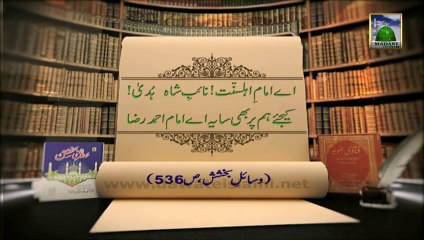 MADANI
اے امامِ اہلسنّت! نائبِ شاہ ہُدیٰ!
کیجئے ہم پر بھی سایہ اے امام احمد رضا
www.dawateislami.net
(وسائلِ بخشش، ص536)